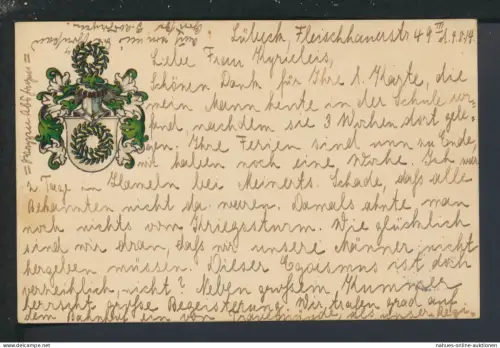 Lübeck, Fleischhauerstr 49 III d. 9.8.14
Liebe Frau Kyrieleis,
Schönen Dank für Ihre l. Karte, die
mein Mann heute in der Schule vor
fand, nachdem sie 3 Wochen dort gele-
gen. Ihre Ferien sind nun zu Ende,
wir haben noch eine Woche. Ich war
2 Tage in Hameln bei Meinerts. Schade, daß alle
Bekannten nicht da waren. Damals ahnte man
noch nichts vom Kriegssturm. Wie glücklich
sind wir dran, daß wir unsere Männer nicht
hergeben müssen. Dieser Egoismus ist doch
verzeihlich, nicht? Neben großem Kummer
herrscht große Begeisterung. Wir trafen grad auf
dem Bahnhof ein von Travemünde, als unser Regi-
von uns
nahues-online-auktionen
www.delcampe.net